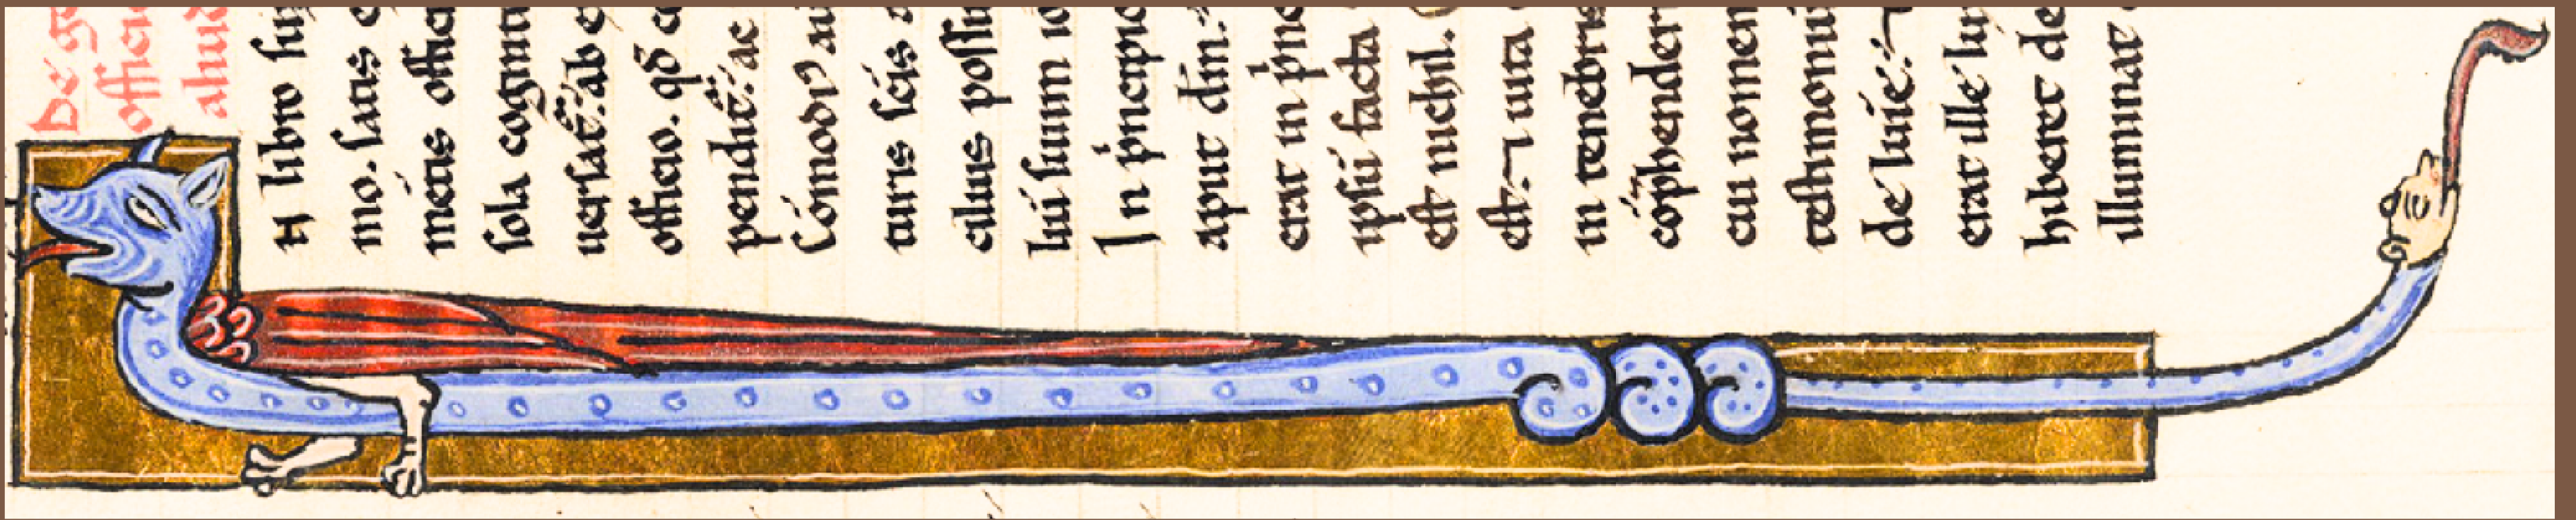 De g
officiu
aliud
N libro su
mo. satis e
metas offici
sola cognit
uersat̄: ab e
officio. qd̄ c
pendit̄: ac
Cōmodꝰ au
turis scīs
cilius possu
suum io
In pͥncipio
aput dm̄.
erat in pͥnc
ipsū facta
est nichil.
est. ⁊ uita
in tenebris
cōphender
cui nomen
testimoniu
de lūīe: ⁊
erat ille lu
hiberet de
illuminat